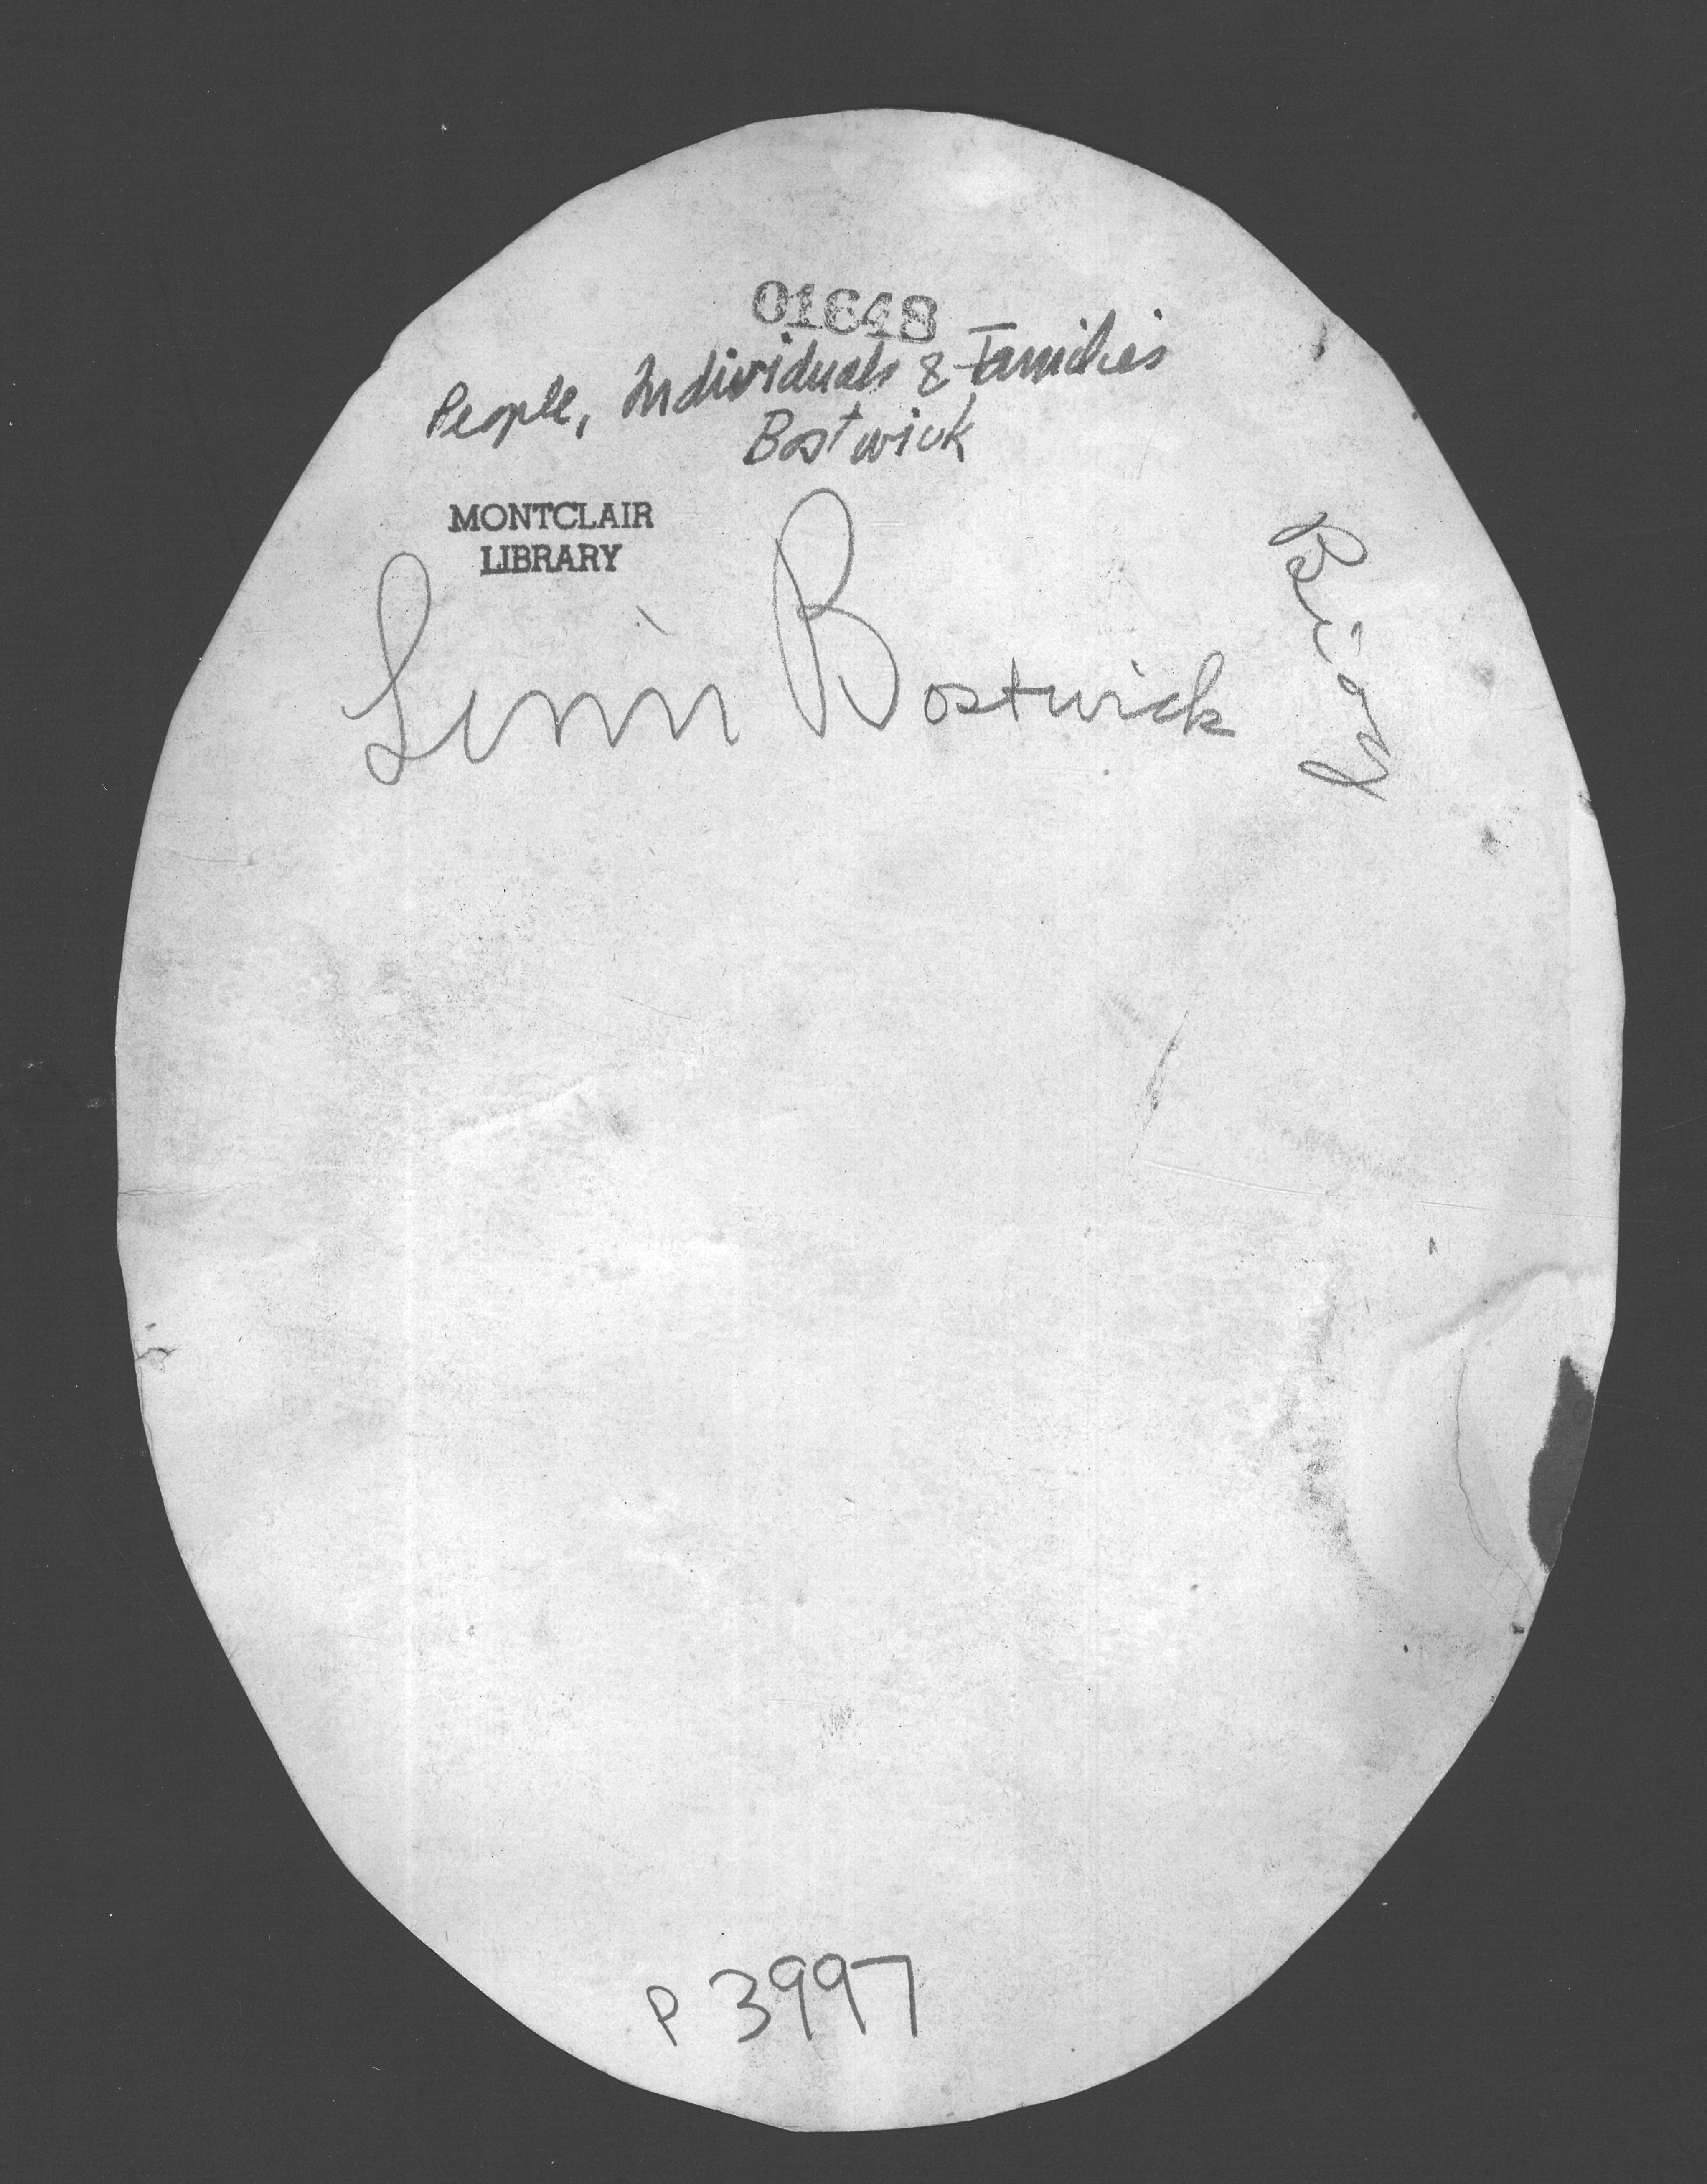 01648
People, Individuals & Families
Bostwick
MONTCLAIR
LIBRARY
Bostwick
P 3997